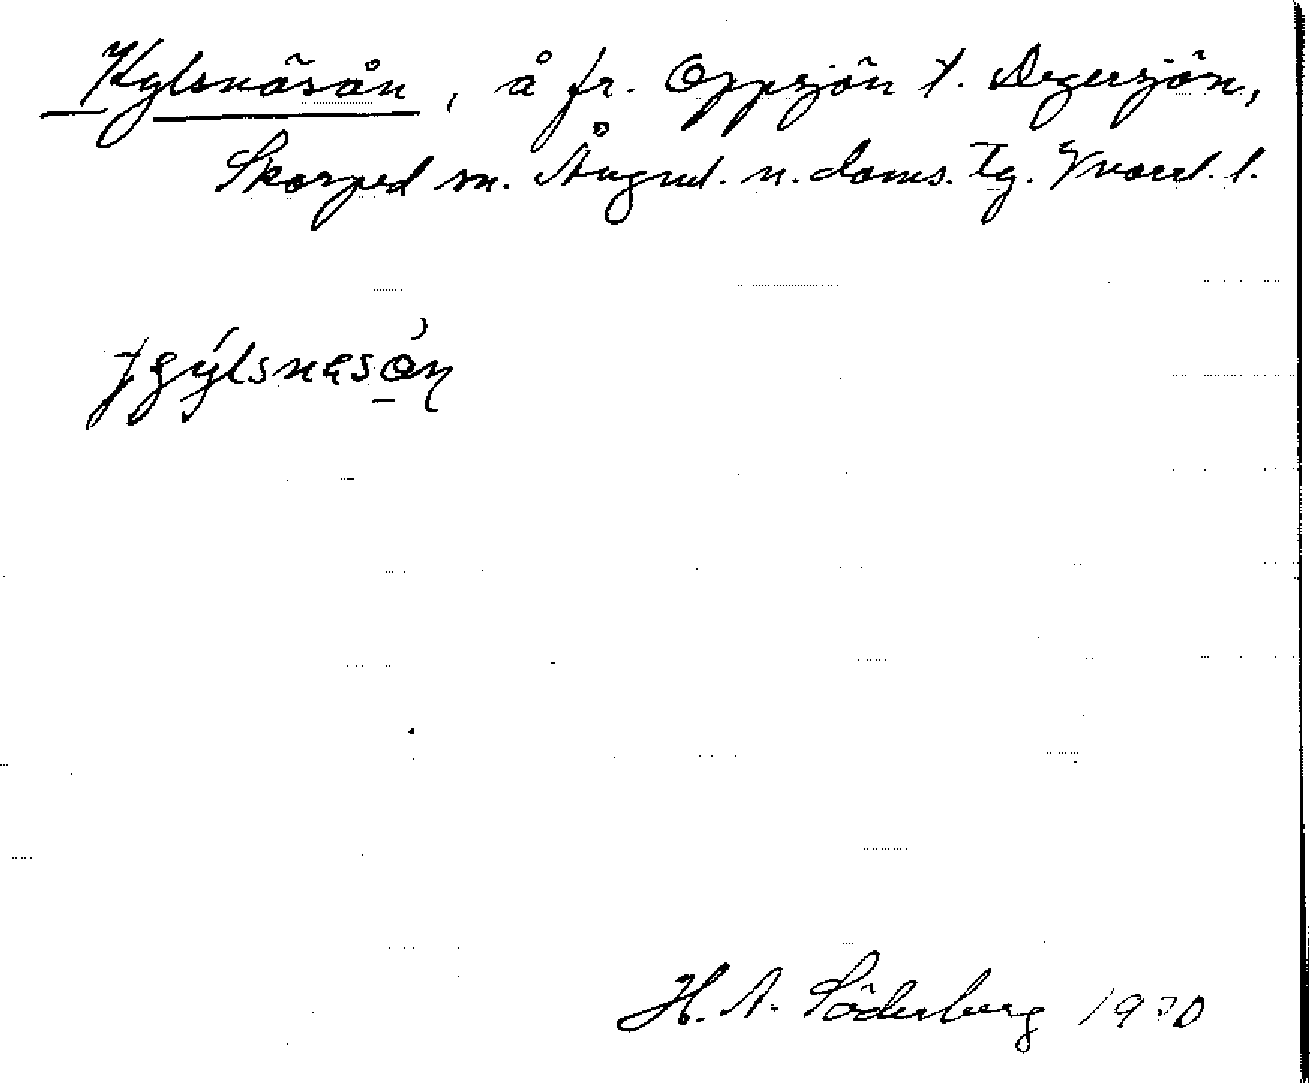 Kylsnäsån, å fr. Oppsjön t. Degersjön,
Skorped sn. Ångml. n. doms. Tg. Vnorrl. l.
H. A. Söderberg 1930